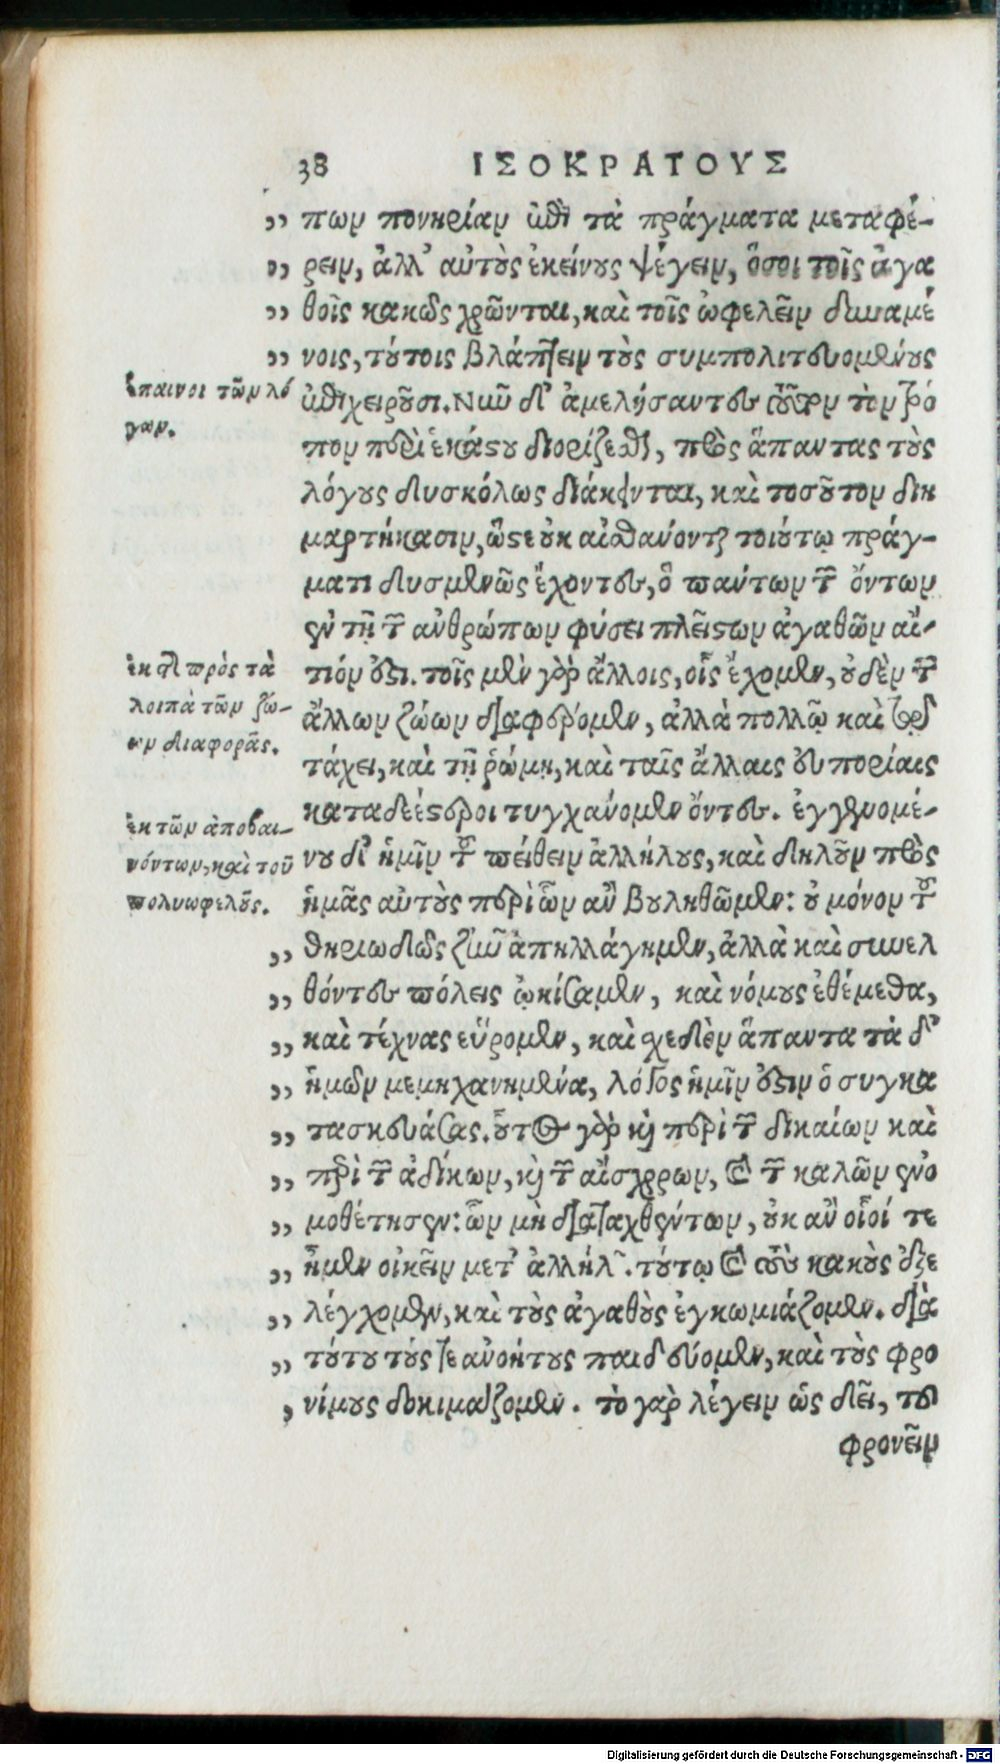 38 ΙΣΟΚΡΑΤΟΥΣ
,, πων πονηρίαν ἐπὶ τὰ πράγματα μεταφέ-
,, ρειν, ἀλλ' αὐτοὺς ἐκείνους ψέγειν, ὅσοι τοῖς ἀγα
,, θοῖς κακῶς χρῶνται, καὶ τοῖς ὠφελεῖν δυναμέ
,, νοις, τούτοις βλάπτειν τοὺς συμπολιτευομένους
ἔπαινοι τῶν λό
γων.
ἐπιχειροῦσι. Νῦν δ' ἀμελήσαντες τοῦτον τὸν τρό
πον περὶ ἑκάστου διορίζεσθαι, πρὸς ἅπαντας τοὺς
λόγους δυσκόλως διάκεινται, καὶ τοσοῦτον διη
μαρτήκασιν, ὥστε οὐκ αἰσθανόνται τοιούτῳ πράγ-
ματι δυσμενῶς ἔχοντες, ὃ πάντων τῶν ὄντων
ἐν τῇ τῶν ἀνθρώπων φύσει πλείστων ἀγαθῶν αἴ-
ἐκ τῆς πρὸς τὰ
λοιπὰ τῶν ζώ-
ων διαφορᾶς.
τιόν ἐστι. τοῖς μὲν γὰρ ἄλλοις, οἷς ἔχομεν, οὐδὲν τῶν
ἄλλων ζώων διαφέρομεν, ἀλλὰ πολλῷ καὶ τῷ
τάχει, καὶ τῇ ῥώμῃ, καὶ ταῖς ἄλλαις εὐπορίαις
καταδεέστεροι τυγχάνομεν ὄντες. ἐγγενομέ-
ἐκ τῶν ἀποβαι-
νόντων, καὶ τοῦ
πολυωφελοῦς.
νου δ' ἡμῖν τοῦ πείθειν ἀλλήλους, καὶ δηλοῦν πρὸς
ἡμᾶς αὐτοὺς περὶ ὧν ἂν βουληθῶμεν: οὐ μόνον τοῦ
,, θηριωδῶς ζῆν ἀπηλλάγημεν, ἀλλὰ καὶ συνελ
,, θόντες πόλεις ᾠκίσαμεν, καὶ νόμους ἐθέμεθα,
,, καὶ τέχνας εὕρομεν, καὶ σχεδὸν ἅπαντα τὰ δι'
,, ἡμῶν μεμηχανημένα, λόγος ἡμῖν ἐστιν ὁ συγκα
,, τασκευάσας. οὗτος γὰρ καὶ περὶ τῶν δικαίων καὶ
,, περὶ τῶν ἀδίκων, καὶ τῶν αἴσχρων, καὶ τῶν καλῶν ἐνο
,, μοθέτησεν: ὧν μὴ διαταχθέντων, οὐκ ἂν οἷοί τε
,, ἦμεν οἰκεῖν μετ' ἀλλήλων. τούτῳ καὶ τοὺς κακοὺς ἐξε
,, λέγχομεν, καὶ τοὺς ἀγαθοὺς ἐγκωμιάζομεν. διὰ
,, τούτου τούς τε ἀνοήτους παιδεύομεν, καὶ τοὺς φρο
, νίμους δοκιμάζομεν. τὸ γὰρ λέγειν ὡς δεῖ, τοῦ
φρονεῖν
Digitalisierung gefördert durch die Deutsche Forschungsgemeinschaft - DFG